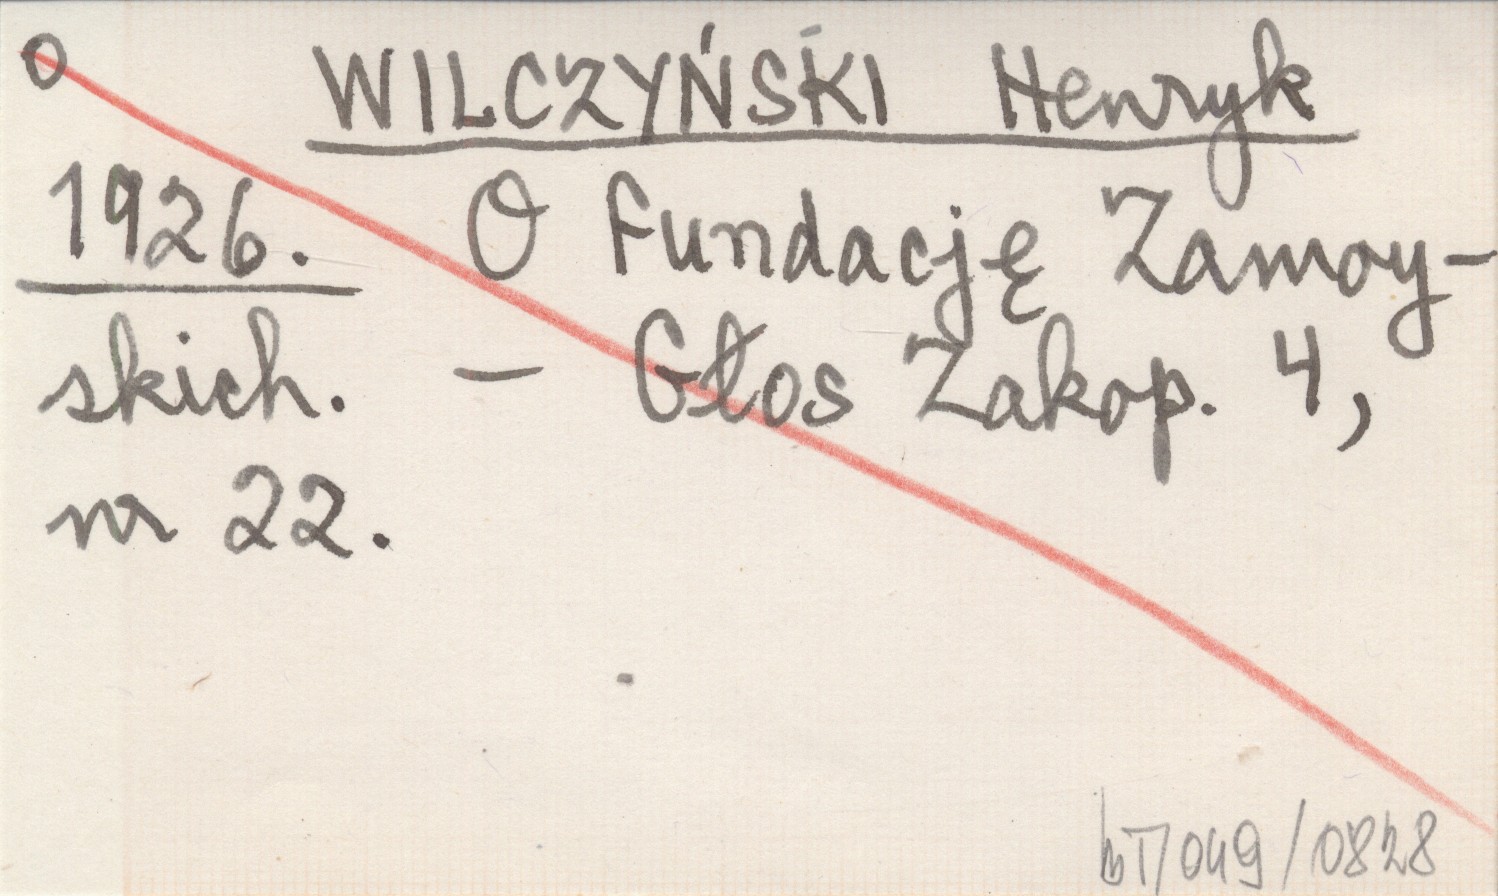 o WILCZYŃSKI Henryk
1926. O Fundację Zamoy-
skich. - Głos Zakop. 4,
nr 22.
bT/049/0828